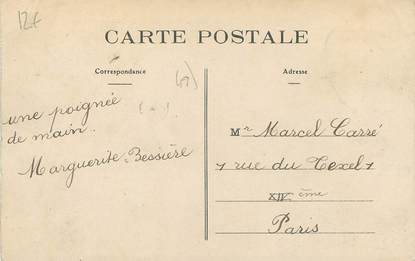 12€
CARTE POSTALE
Correspondance
Adresse
une poignée
de main.
Marguerite Bessière
Mr Marcel Carré
7 rue du Texel 7
XIVème
Paris